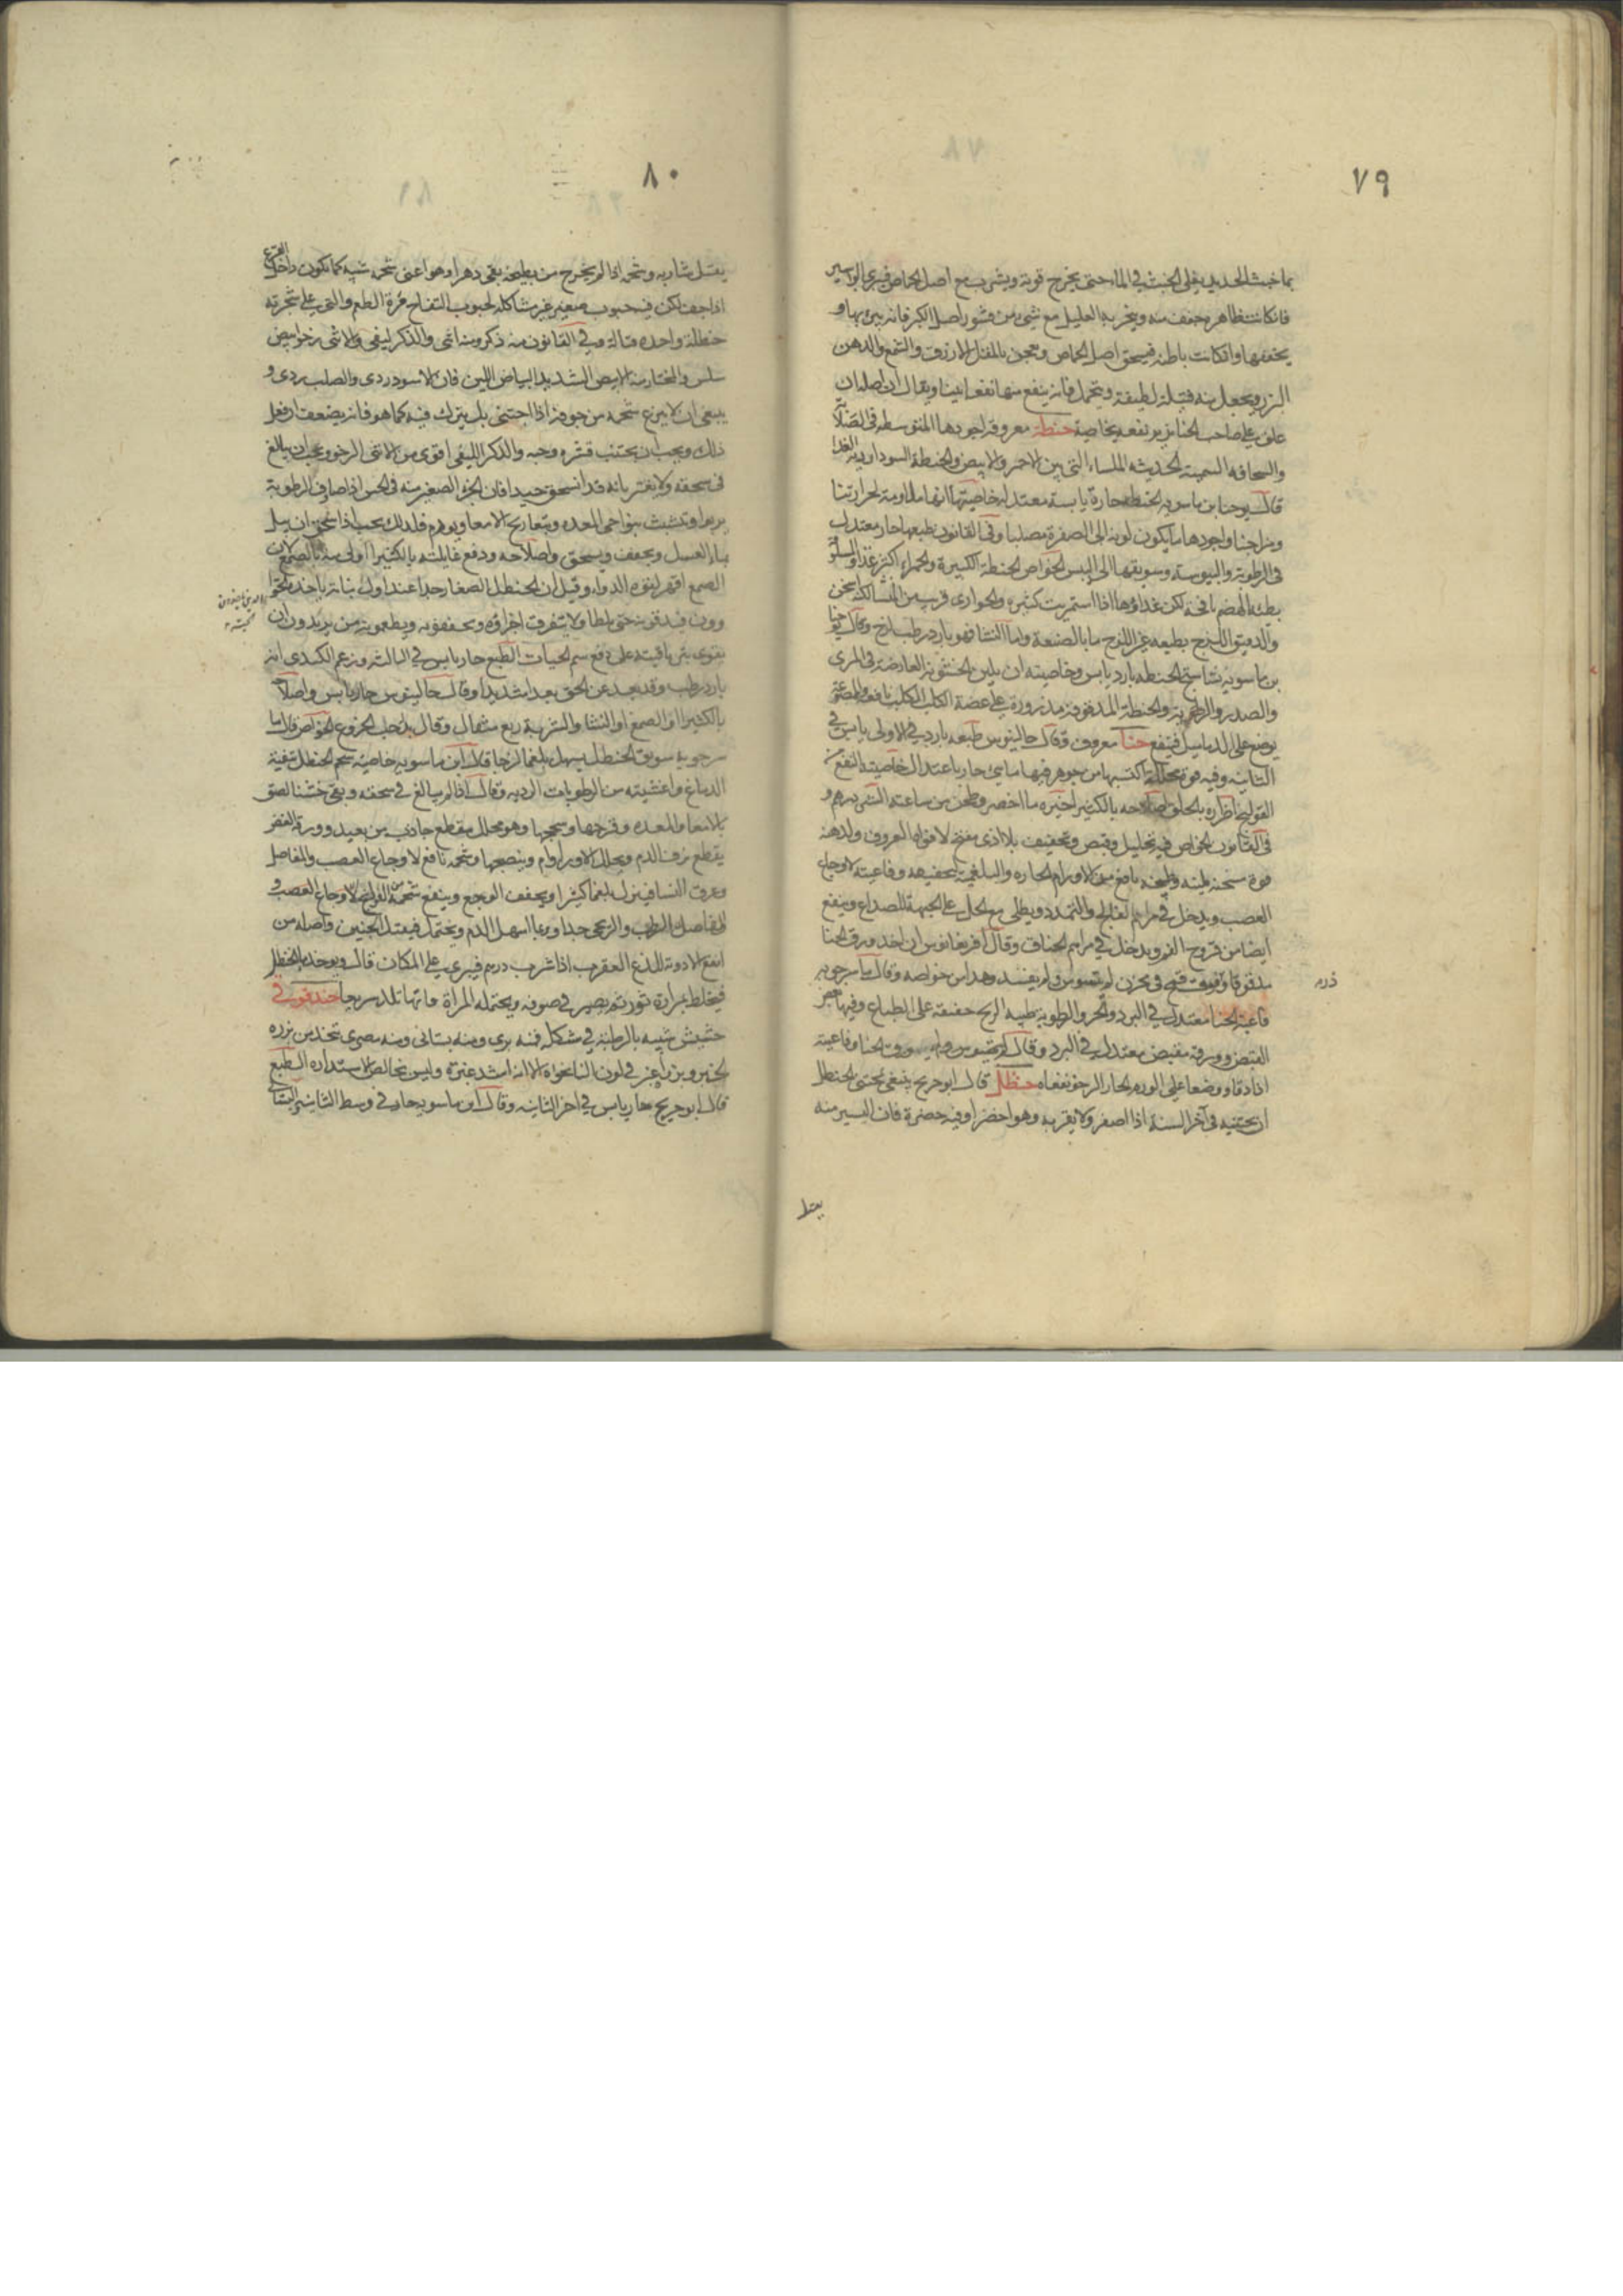 ٧٩
بما خبث الحديد يغلى الخبث في الماء حتى يخرج قوته ويشرب مع اصل الحماض فيبرى البواسير
فان كانت ظاهره جفف منه وبخر به العليل مع شي من قشور اصل الكبر فانه يبرى بها و
يجففها وان كانت باطنه فيسحق اصل الحماض ويعجن بالمقل الازرق والشمع والدهن
ويجعل منه فتيلة لطيفة ويتحمل فانه ينفع منها نفعا بينا ويقال ان اصله ان
علق على صاحب الخنازير نفعه بخاصية حنطة معروفه اجودها المتوسطه في الصلابة
والسخافه السمينة الحديثه الملساء التي بين الاحمر والابيض والحنطة السودا رديه الغذا
قال يوحنا بن ماسويه الحنطه حارة يابسة معتدله خاصيتها انها ملاومة لحرارتنا
ومزاجنا واجودها ما يكون لونه الى الصفرة مصلبا وفي القانون طبعها حار معتدل
في الرطوبة واليبوسة وسويقها الى اليبس الخواص الحنطة الكبيرة والحمراء اكثر غذا والسلوقة
بطيئة الهضم نافخه لكن غذاوها اذا استمريت كثيره والحوارى قريب من النشا لكنه اسخن
والدقيق اللزج بطبعه غير اللزوج ما بالصنعة واما النشا فهو بارد رطب لزج وقال يوحنا
بن ماسويه نشاستج الحنطه بارد يابس وخاصيته ان يلين الخشونة العارضة في المرى
والصدر والرطوبة والحنطة المدقوقه مذرورة على عضة الكلب الكلب نافعه والممضوغة
يوضع على الدماميل فينفع حنا معروف وقال جالينوس طبعه بارد في الاولى يابس في
الثانيه وفيه قوة محللة اكتسبها من جوهر فيها مايي حار باعتدال خاصيته النفع من
القولنج اضراره بالحلق اصلاحه بالكثيرا خيره ما اخضر وطحن من ساعته الشربه درهم و
في القانون الخواص فيه تحليل وقبض وتجفيف بلا اذى مفتح لافواه العروق ولدهنه
قوة مسخنة ملينه وطبيخه نافع من الاورام الحاره والبلغمية لتجفيفه وفاغيته لاوجاع
العصب ويدخل في مراهم الفالج والتمدد ويطلى مع الخل على الجبهة للصداع وينفع
ايضا من قروح الفم ويدخل في مراهم الخناق وقال ان اخذ ورق الحنا
قمح في مخزن لم يتسوس ولم يفسد وهذا من خواصه وقال ماسرجويه
ذره
فاغية الحنا معتدل في البرد والحر والرطوبة طيبه الريح خفيفة على الطباع وفيها بعض
القبض وورقه مقبض معتدل في البرد وقال ورق الحنا وفاغيته
اذا دقا ووضعا على الورم الحار الرخو نفعاه حنظل قال ابو جريج ينبغي لمجتني الحنظل
ان يجتنيه في آخر السنة اذا اصفر ولا يقربه وهو اخضر او فيه خضرة فان اليسير منه
يقتل
٨٠
يقتل شاربه وشحمه اذا لم يخرج من بطيخه بقى دهرا وهو اعنى شحمه شبيه كما يكون داخل القرع
اذا جف لكن فيه حبوب صغير غير مشاكله لحبوب التفاح مرة الطعم والتي على شجرته
حنظلة واحده قتالة وفي القانون منه ذكر ومنه انثى والذكر ليفي والانثى رخو ابيض
سلس والمختار منه الابيض الشديد البياض اللين فان الاسود ردى والصلب ردى و
ينبغي ان لا ينزع شحمه من جوفه اذا اجتنى بل يترك فيه كما هو فانه يضعف ان فعل
ذلك ويجب ان يجتنب قشره وحبه والذكر الليفي اقوى من الانثى الرخو ويجب ان يبالغ
في سحقه ولا يغتر بانه قد انسحق جيدا فان الجزء الصغير منه في الحس اذا صادف الرطوبة
ربا وتشبث بنواحي المعده وبتعاريج الامعا ويورم فلذلك يجب اذا سحق ان يبل
بماء العسل ويجفف ويسحق واصلاحه ودفع غايلته بالكثيرا اولى منه بالصمغ لان
الصمغ اقهر لقوة الدواء وقيل ان الحنظل الصغار جدا عند اول نباته ياخذه الحوا
وون فيدقونه حتى يختلط ولا يتفرق اجزاؤه ويجففونه ويطعمونه من يريدون ان
يقوى ترياقيته على دفع سم الحيات الطبع حار يابس في الثالثه وزعم الكندي انه
بارد رطب وقد بعد عن الحق بعدا شديدا وقال جالينوس حار يابس واصلاحه
بالكثيرا او الصمغ او النشا والشربة ربع مثقال وقال بدله حب الخروع الخواص قال ما
سرجويه سويق الحنظل يسهل بلغما لزجا قال ابن ماسويه خاصية شحم الحنظل تنقية
الدماغ واغشيته من الرطوبات الرديه وقال اذا لم يبالغ في سحقه وبقى خشنا لصق
بالامعا والمعده وقرحها وسحجها وهو محلل مقطع جاذب من بعيد وورقه الغض
يقطع نزف الدم ويحلل الاورام وينضجها وشحمه نافع لاوجاع العصب والمفاصل
وعرق النسا فينزل بلغما كثيرا ويجفف الوجع وينفع شحمه من القولنج لاوجاع العصب و
المفاصل الرطب والريحى جدا وربما اسهل الدم ويحتمل فيقتل الجنين واصله من
انفع الادوية للدغ العقرب اذا شرب درهم فيبرى على المكان قال ويوخذ الحنظل
فيخلط بمرارة ثور ثم يصير في صوفه ويحتمله المراة فانها تلد سريعا حندقوقى
حشيش شبيه بالرطبة في شكله فمنه برى ومنه بستانى ومنه مصرى يتخذ من بزره
الخبز وبزره اغبر في لون النانخواه الا انه اشد غبرة وليس بخالص الاستداره الطبع
قال ابو جريج حار يابس في اخر الثانيه وقال ابن ماسويه حار في وسط الثانيه